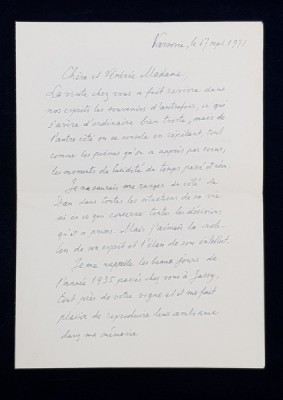 Varsovie, le 17 sept. 1971
Chère et Vénérée Madame,
La visite chez vous a fait revivre dans
nos esprits les souvenirs d'autrefois, ce qui
s'avère d'ordinaire bien triste, mais de
l'autre côté on se console en répétant tout
comme les poèmes qu'on a appris par coeur,
les moments de lucidité du temps passé et réel.
Je ne saurais me ranger du côté de
Dan dans toutes les situations de sa vie
ni en ce qui concerne toutes les décisions
qu'il a prises. Mais j'aimais la
de son esprit et l'élan de son
Je me rappelle les beaux jours de
l'année 1935 passés chez vous à Jassy.
tout près de votre vigne et il me fait
plaisir de reproduire leur ambiance
dans ma mémoire.